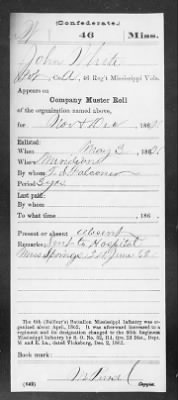 (Confederate.)
46 Miss.
John White
Pvt, Co. , 46 Reg't Mississippi Vols.
Appears on
Company Muster Roll
of the organization named above,
for Nov & Dec , 186 .
Enlisted:
When May 3 , 186 .
Where Meridian
By whom Falconer
Period 3 yrs
Last paid:
By whom
To what time , 186 .
Present or absent absent
Remarks: Sent to Hospital
Miss Springs June 63
The 6th (Balfour's) Battalion Mississippi Infantry was
organized about April, 1862. It was afterward increased to a
regiment and its designation changed to the 46th Regiment
Mississippi Infantry by S. O. No. , Hd. Qrs. 2d Dist., Dept.
M. and E. La., dated Vicksburg, Dec. 2, 1862.
Book mark:
(642) Copyist.